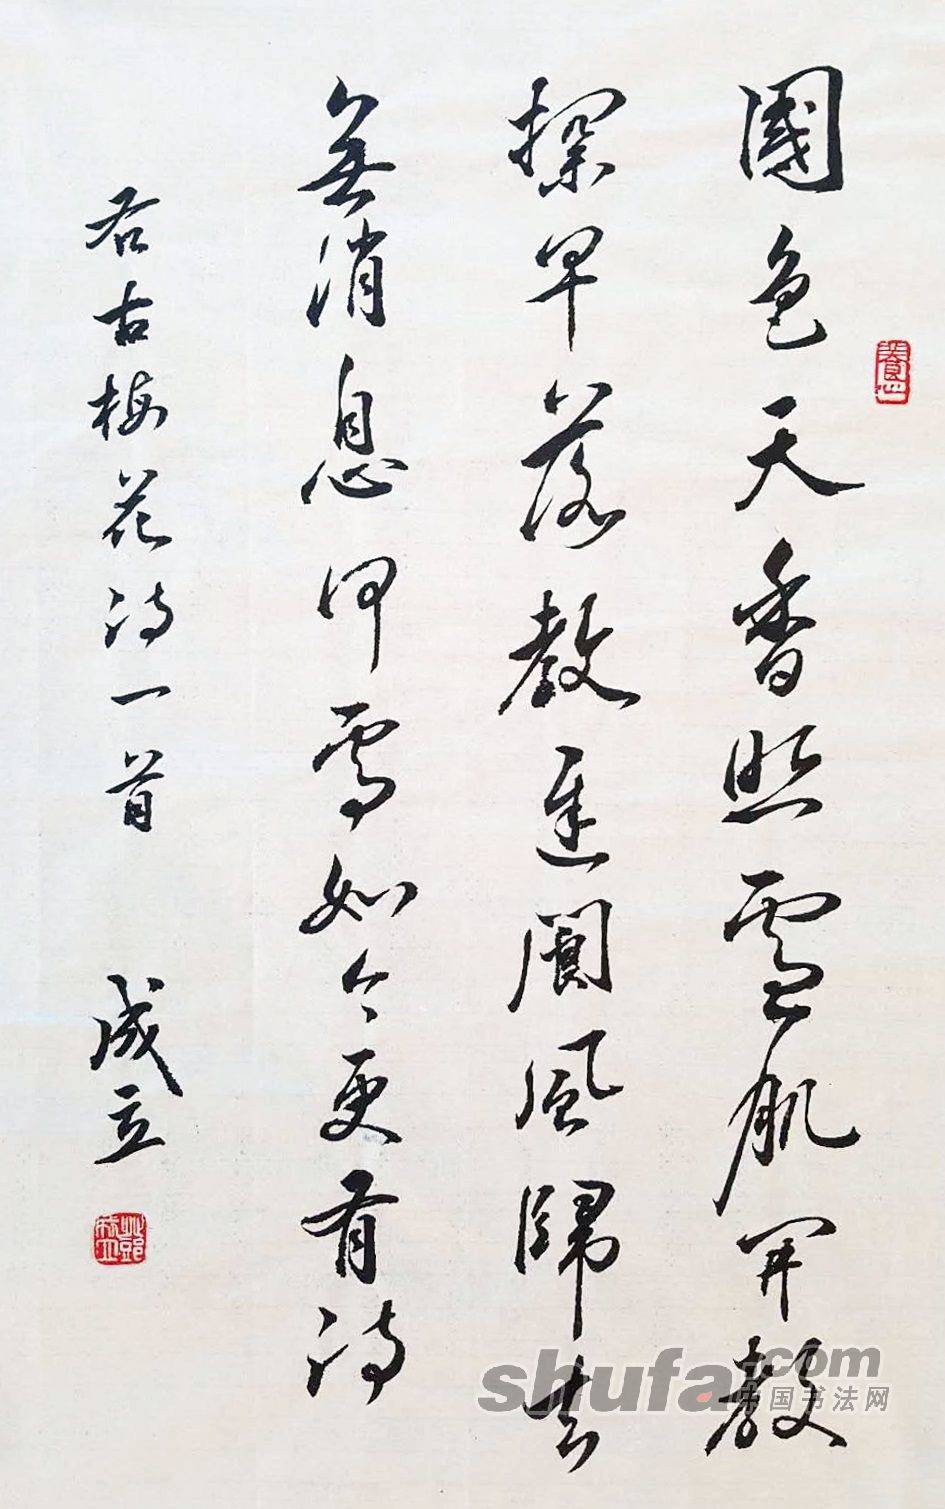 國色天香照雪肌開教
探早落教遲閬風歸去
無消息何處如今更有詩
右古梅花詩一首 成立
shufa.com
中国书法网